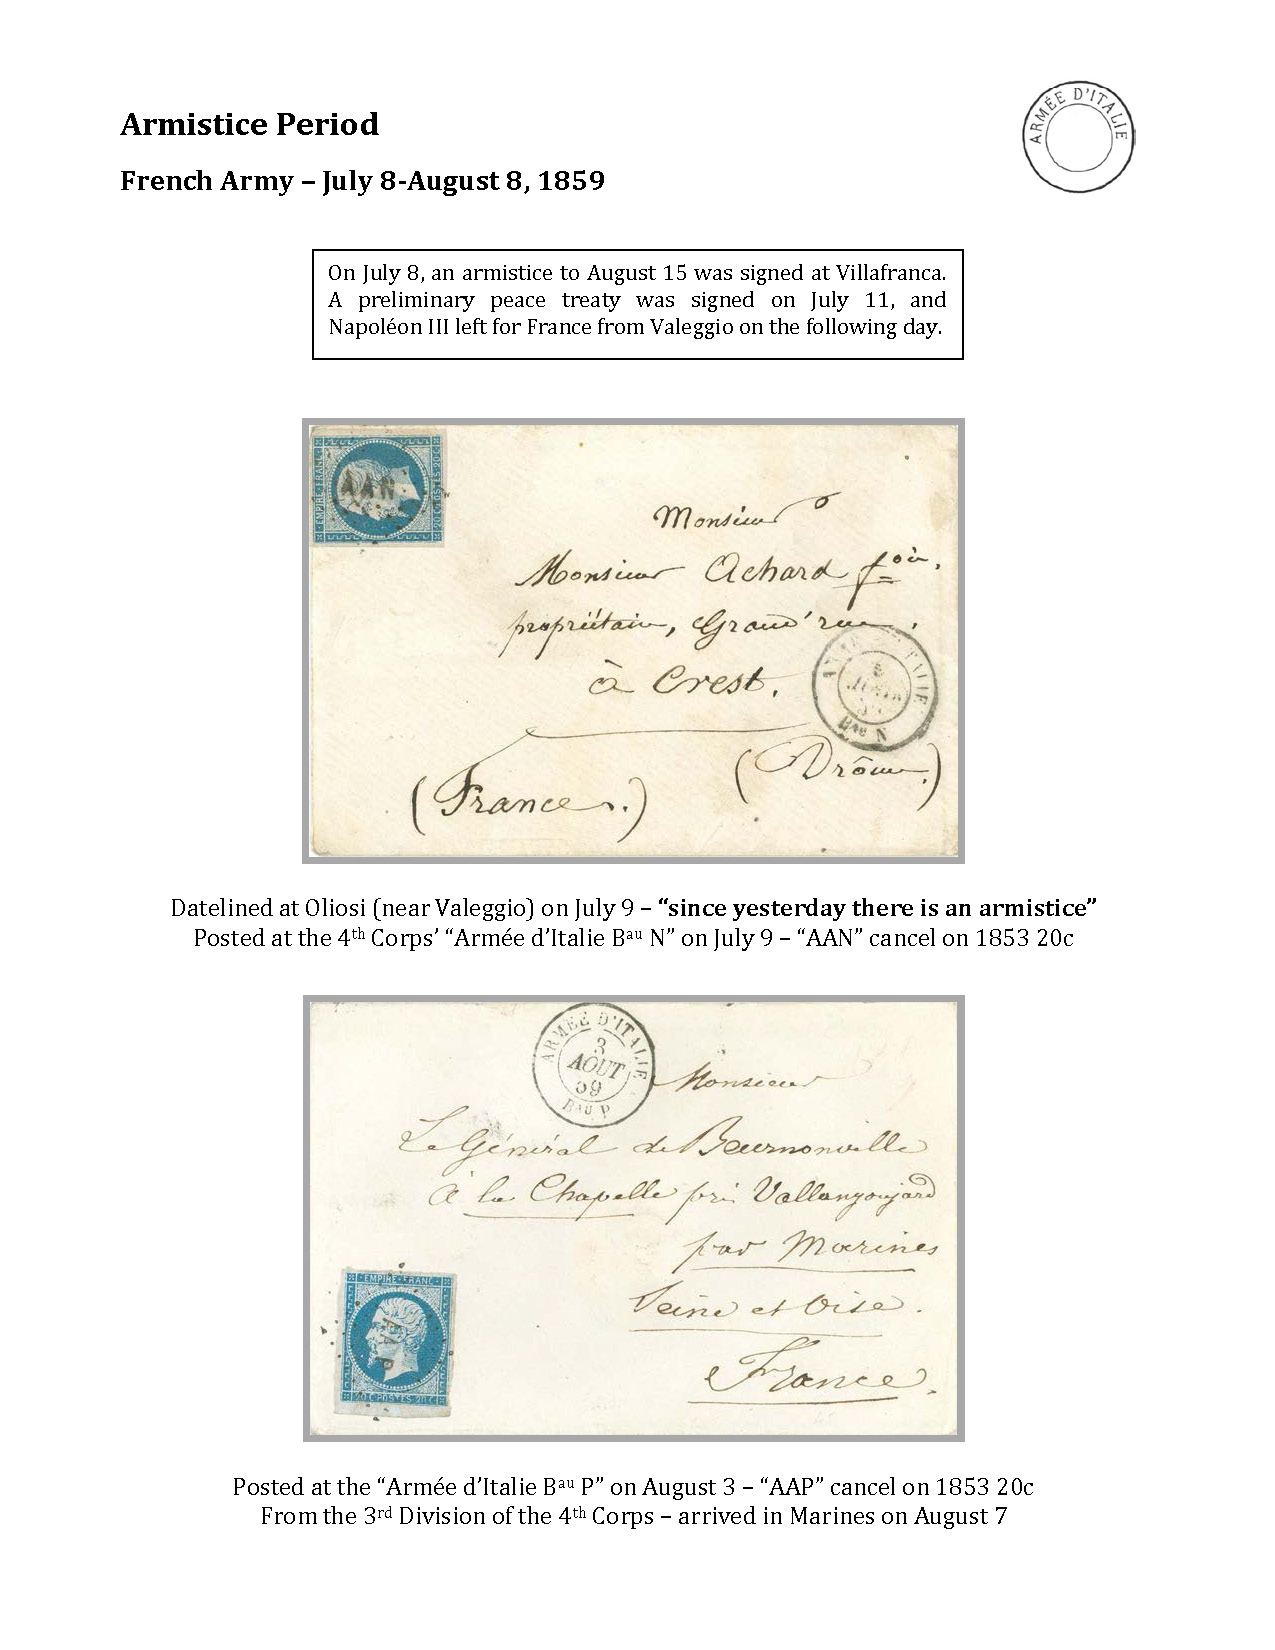 Armistice Period
ARMÉE D'ITALIE
French Army – July 8-August 8, 1859
On July 8, an armistice to August 15 was signed at Villafranca.
A preliminary peace treaty was signed on July 11, and
Napoléon III left for France from Valeggio on the following day.
EMPIRE FRANC
20 C POSTES 20 C
AAN
Monsieur
Monsieur Achard
propriétaire, Grand'rue.
à Crest.
Bau N
(Drôme.)
(France.)
Datelined at Oliosi (near Valeggio) on July 9 – “since yesterday there is an armistice”
Posted at the 4th Corps’ “Armée d’Italie Bau N” on July 9 – “AAN” cancel on 1853 20c
ARMÉE D'ITALIE
3
AOUT
59
Bau P
Monsieur
Le Général de Beurnonville
à la Chapelle près Vallangoujard
par Marines
Seine et Oise.
France.
EMPIRE FRANC
AAP
20 C POSTES 20 C
Posted at the “Armée d’Italie Bau P” on August 3 – “AAP” cancel on 1853 20c
From the 3rd Division of the 4th Corps – arrived in Marines on August 7